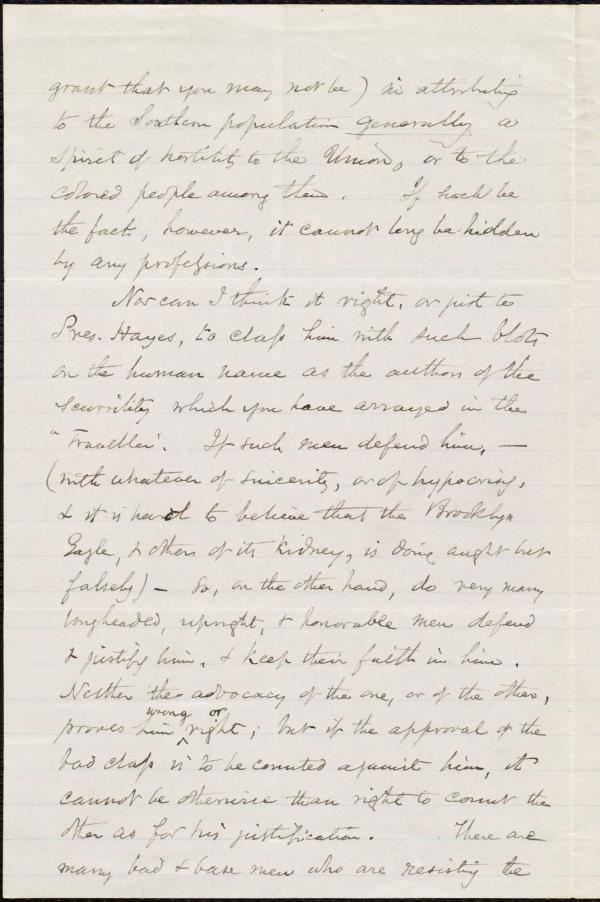 grant that you may not be) in attributing
to the Southern population generally a
spirit of hostility to the Union, or to the
colored people among them. If such be
the fact, however, it cannot long be hidden
by any professions.
Nor can I think it right, or just to
Pres. Hayes, to class him with such blots
on the human name as the authors of the
scurrility which you have arrayed in the
"Traveller". If such men defend him, —
(with whatever of sincerity, or of hypocrisy,
& it is hard to believe that the Brooklyn
Eagle, & others of its kidney, is doing aught but
falsely) — so, on the other hand, do very many
longheaded, upright, & honorable men defend
& justify him, & keep their faith in him.
Neither the advocacy of the one, or of the other,
proves him wrong or right; but if the approval of the
bad class is to be counted against him, it
cannot be otherwise than right to count the
other as for his justification. There are
many bad & base men who are resisting the